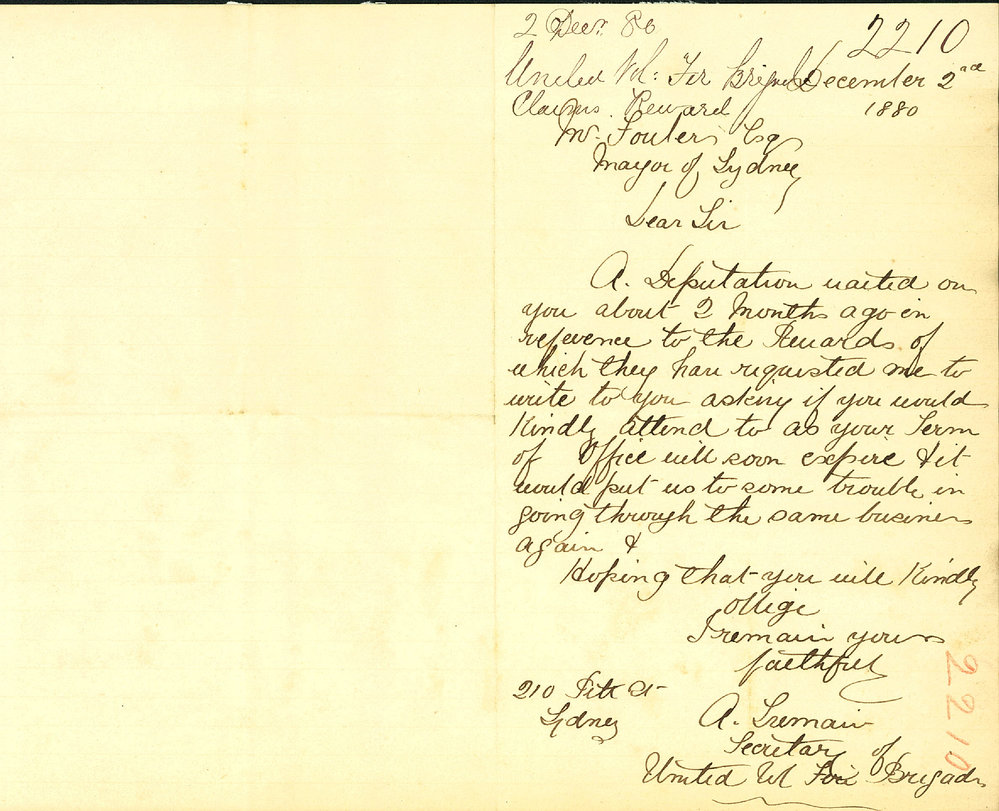 2 Decr. 80
2210
United Vol: Fir Brigade
December 2nd
Claims Reward
1880
Mr. Fowler Esq
Mayor of Sydney
Dear Sir
A. Deputation waited on
you about 2 Months ago in
reference to the Rewards of
which they have requisted me to
write to you asking if you would
Kindly attend to as your Term
of Office will soon expire & it
would put us to some trouble in
going through the same business
again &
Hoping that you will Kindly
oblige
I remain yours
faithfuly
210 Pitt St
Sydney
A. Tremain
Secretary of
United Vol Fire Brigade
2210